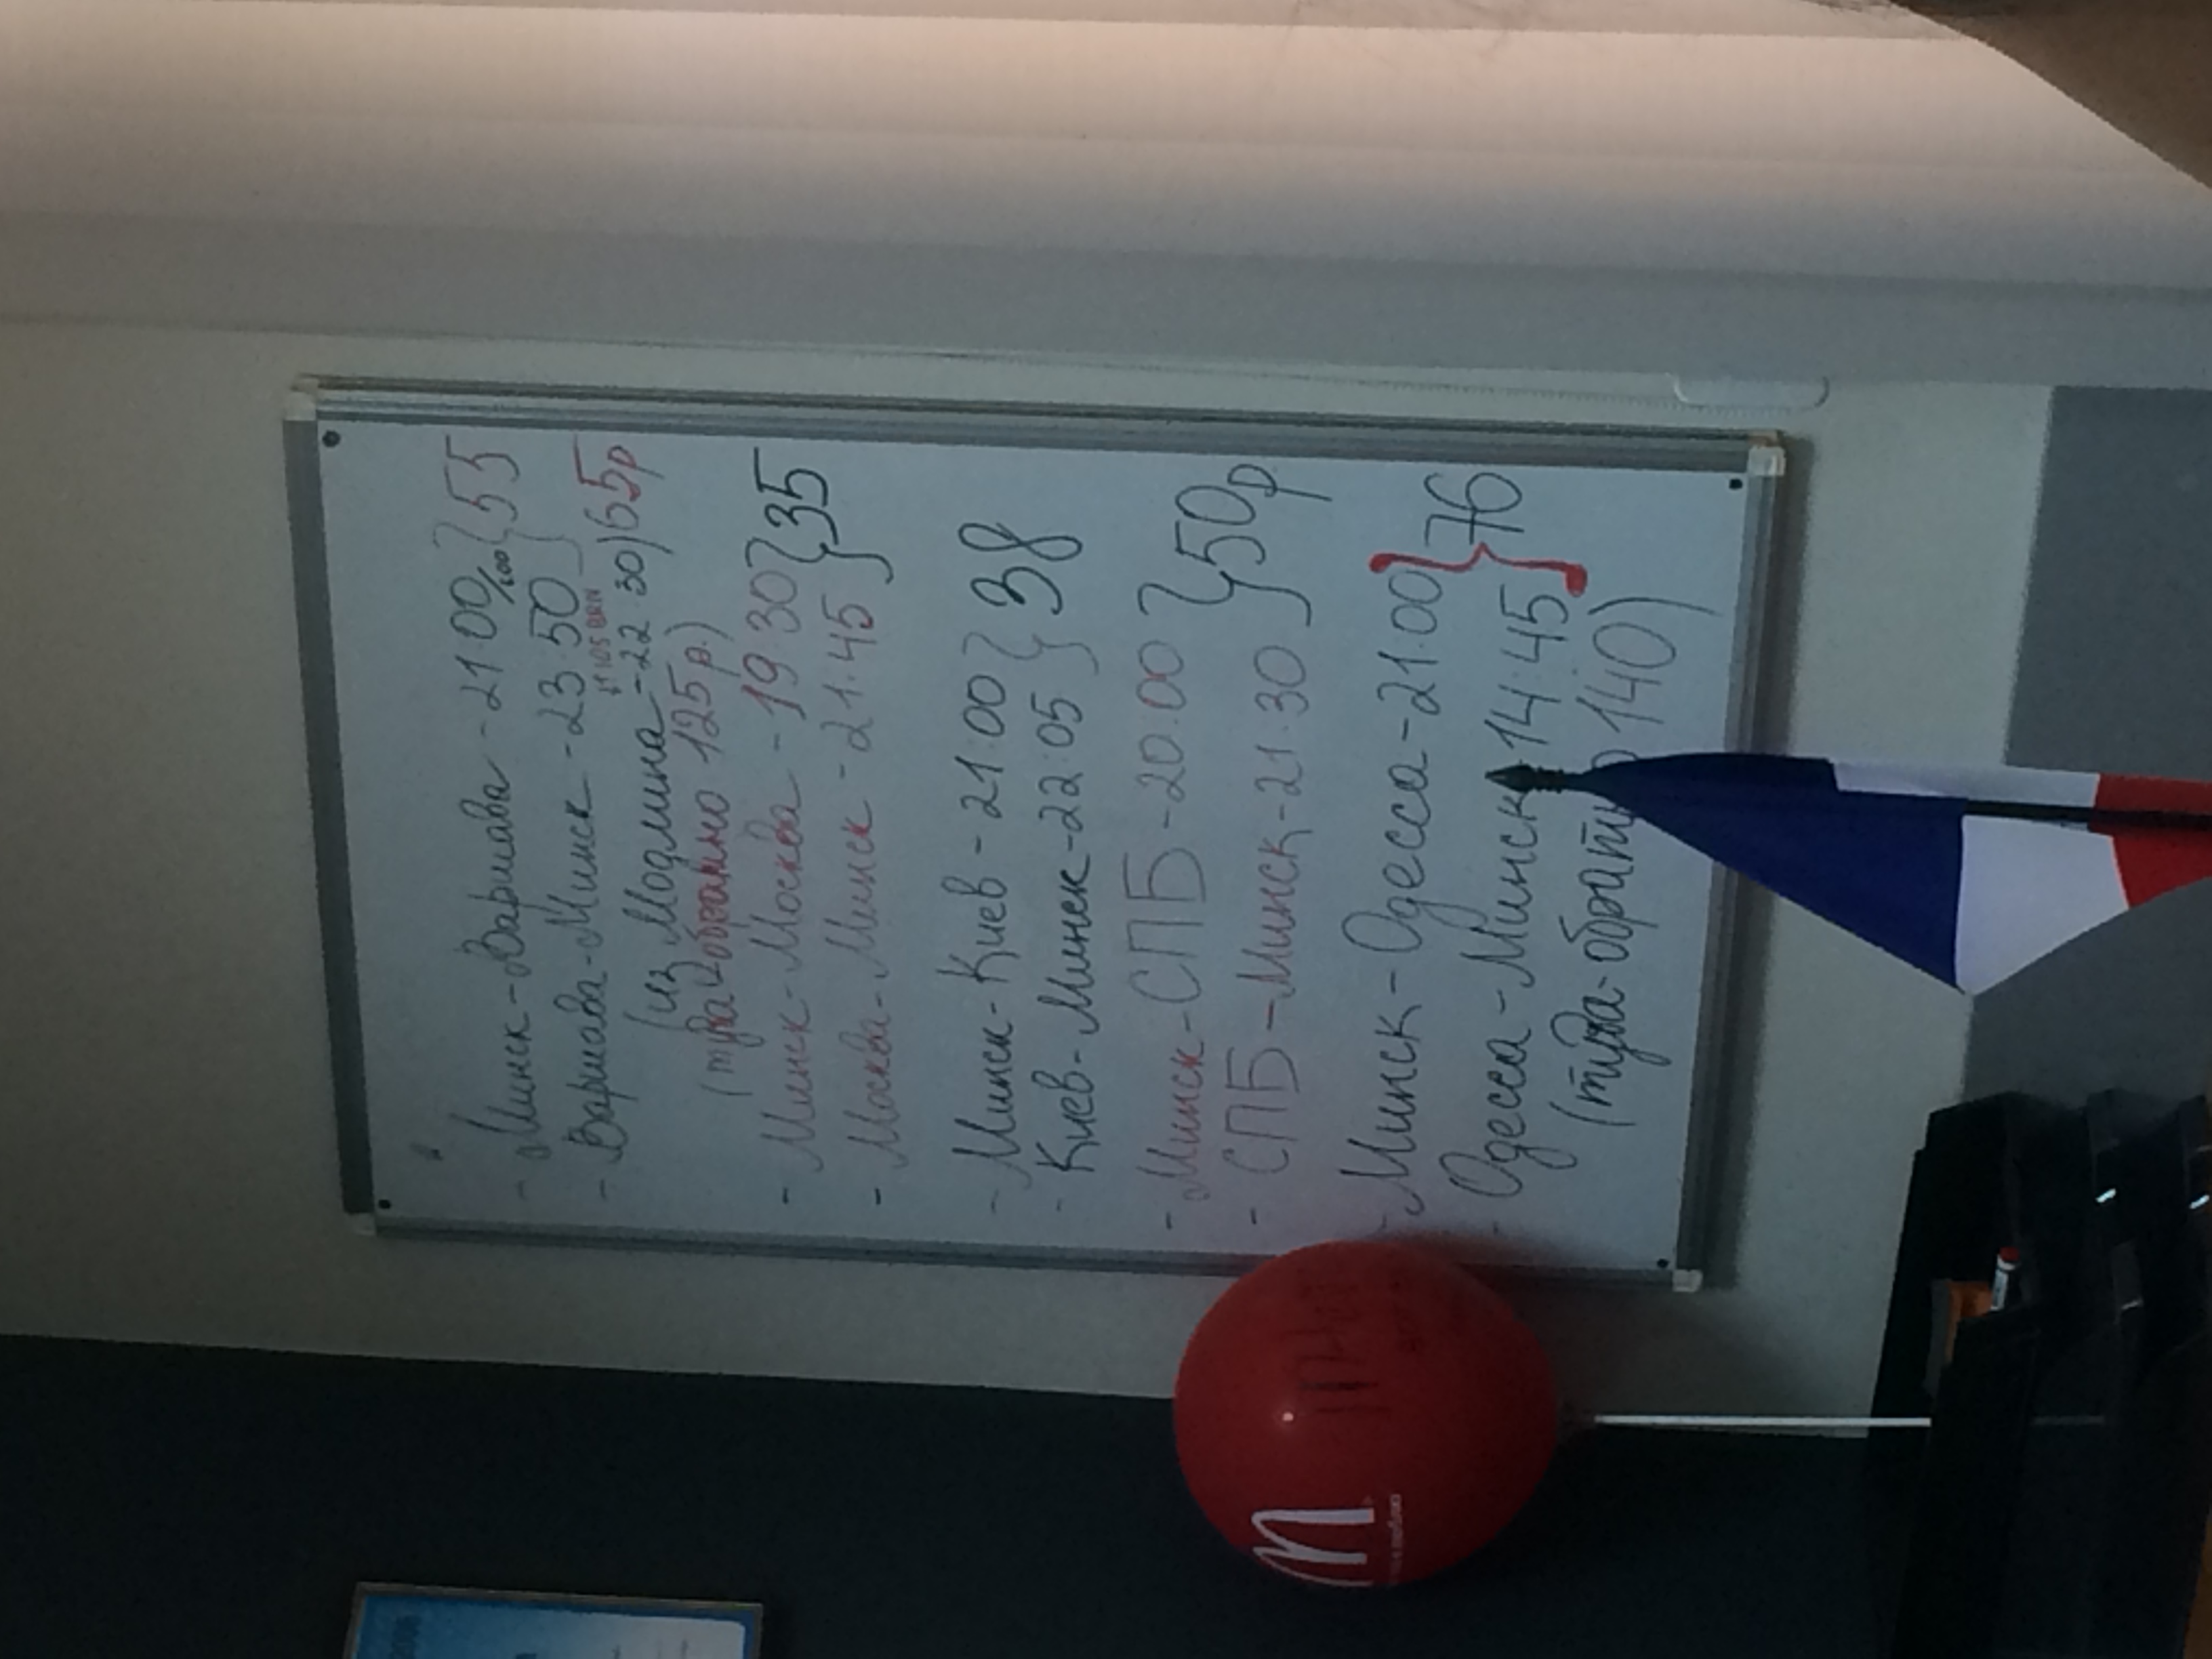 - Минск-Варшава - 21 00/
- Варшава-Минск - 23 50 } 55
105 BRN
(из Модлина - 22 30) 65р
(туда-обратно 125р.)
- Минск-Москва - 19 30
- Москва-Минск - 21.45 } 35
- Минск-Киев - 21:00
- Киев-Минск - 22:05 } 38
- Минск-СПБ - 20:00
- СПБ-Минск - 21.30 } 50р
- Минск-Одесса - 21.00
- Одесса-Минск 14:45 } 76
(туда-обратно 140)
m
2008